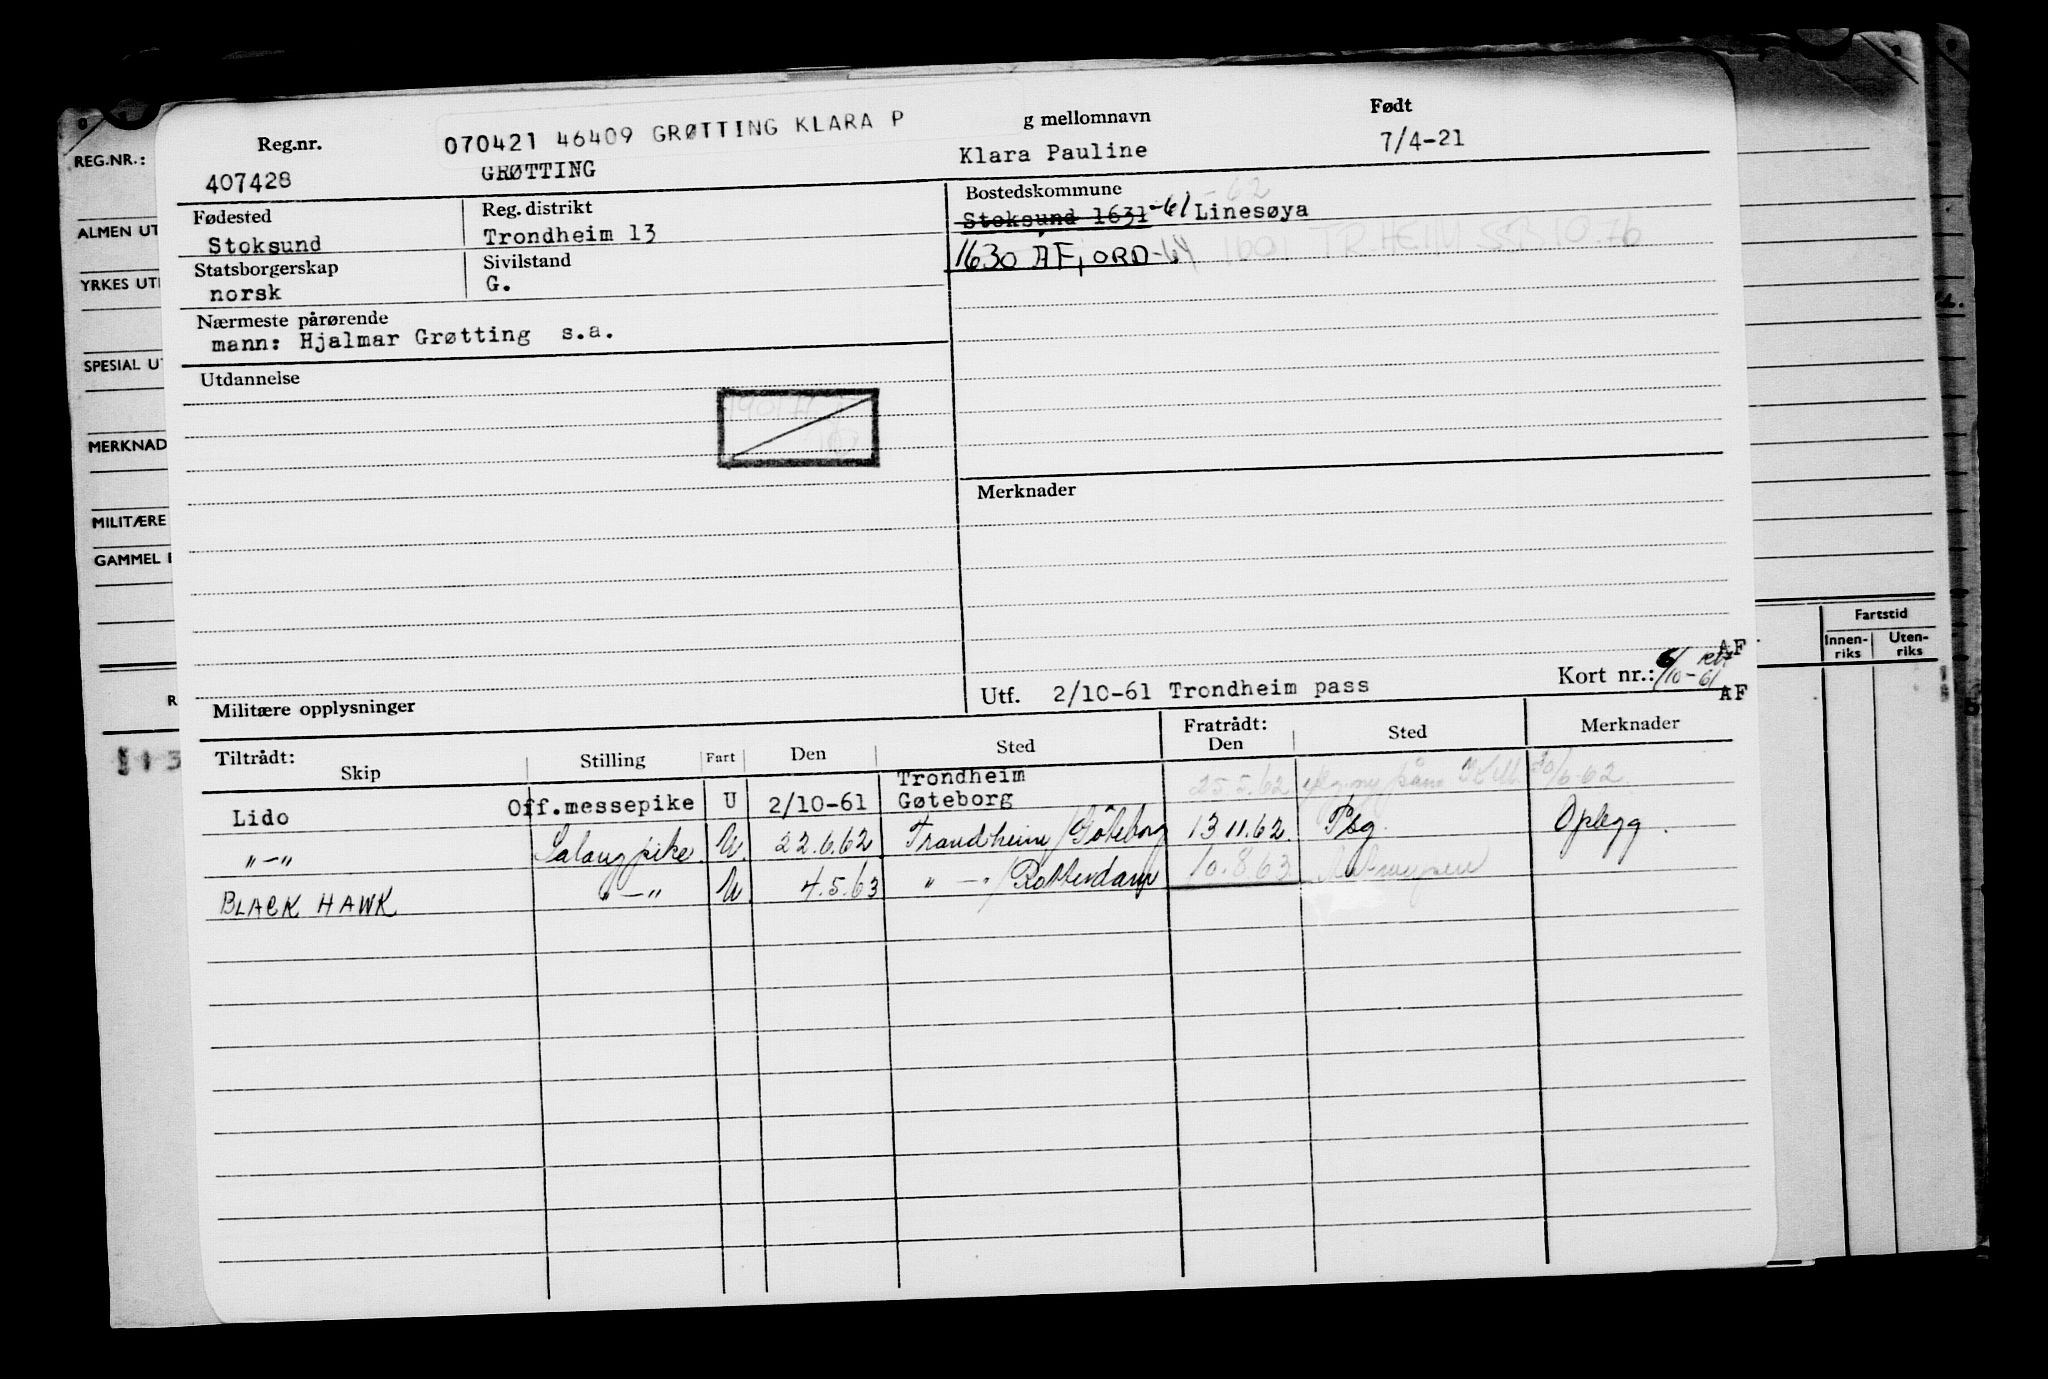 Reg.nr. 070421 46409 GRØTTING KLARA P g mellomnavn Født
407428 GRØTTING Klara Pauline 7/4-21
Fødested Reg. distrikt Bostedskommune -62
Stoksund Trondheim 13 Stoksund 1631 -61 Linesøya
Statsborgerskap Sivilstand 1630 ÅFJORD -64 1601 TR.HEIM SSB 10.76
norsk G.
Nærmeste pårørende
mann: Hjalmar Grøtting s.a.
Utdannelse
Merknader
Utf. 2/10-61 Trondheim pass Kort nr.: 6/10-61 AF
AF
Militære opplysninger
Tiltrådt: Fratrådt:
Skip Stilling Fart Den Sted Den Sted Merknader
Lido Off.messepike U 2/10-61 Trondheim Gøteborg 25.5.62 20/6-62
"-" Salongpike U 22.6.62 Trondheim/Göteborg 13 11.62 Pbg. Oplegg.
BLACK HAWK "-" U 4.5.63 "-"/Rotterdam 10.8.63
REG.NR.:
ALMEN UT
YRKES UT
SPESIAL UT
MERKNAD
MILITÆRE
GAMMEL
R
Fartstid
Innen-riks Uten-riks